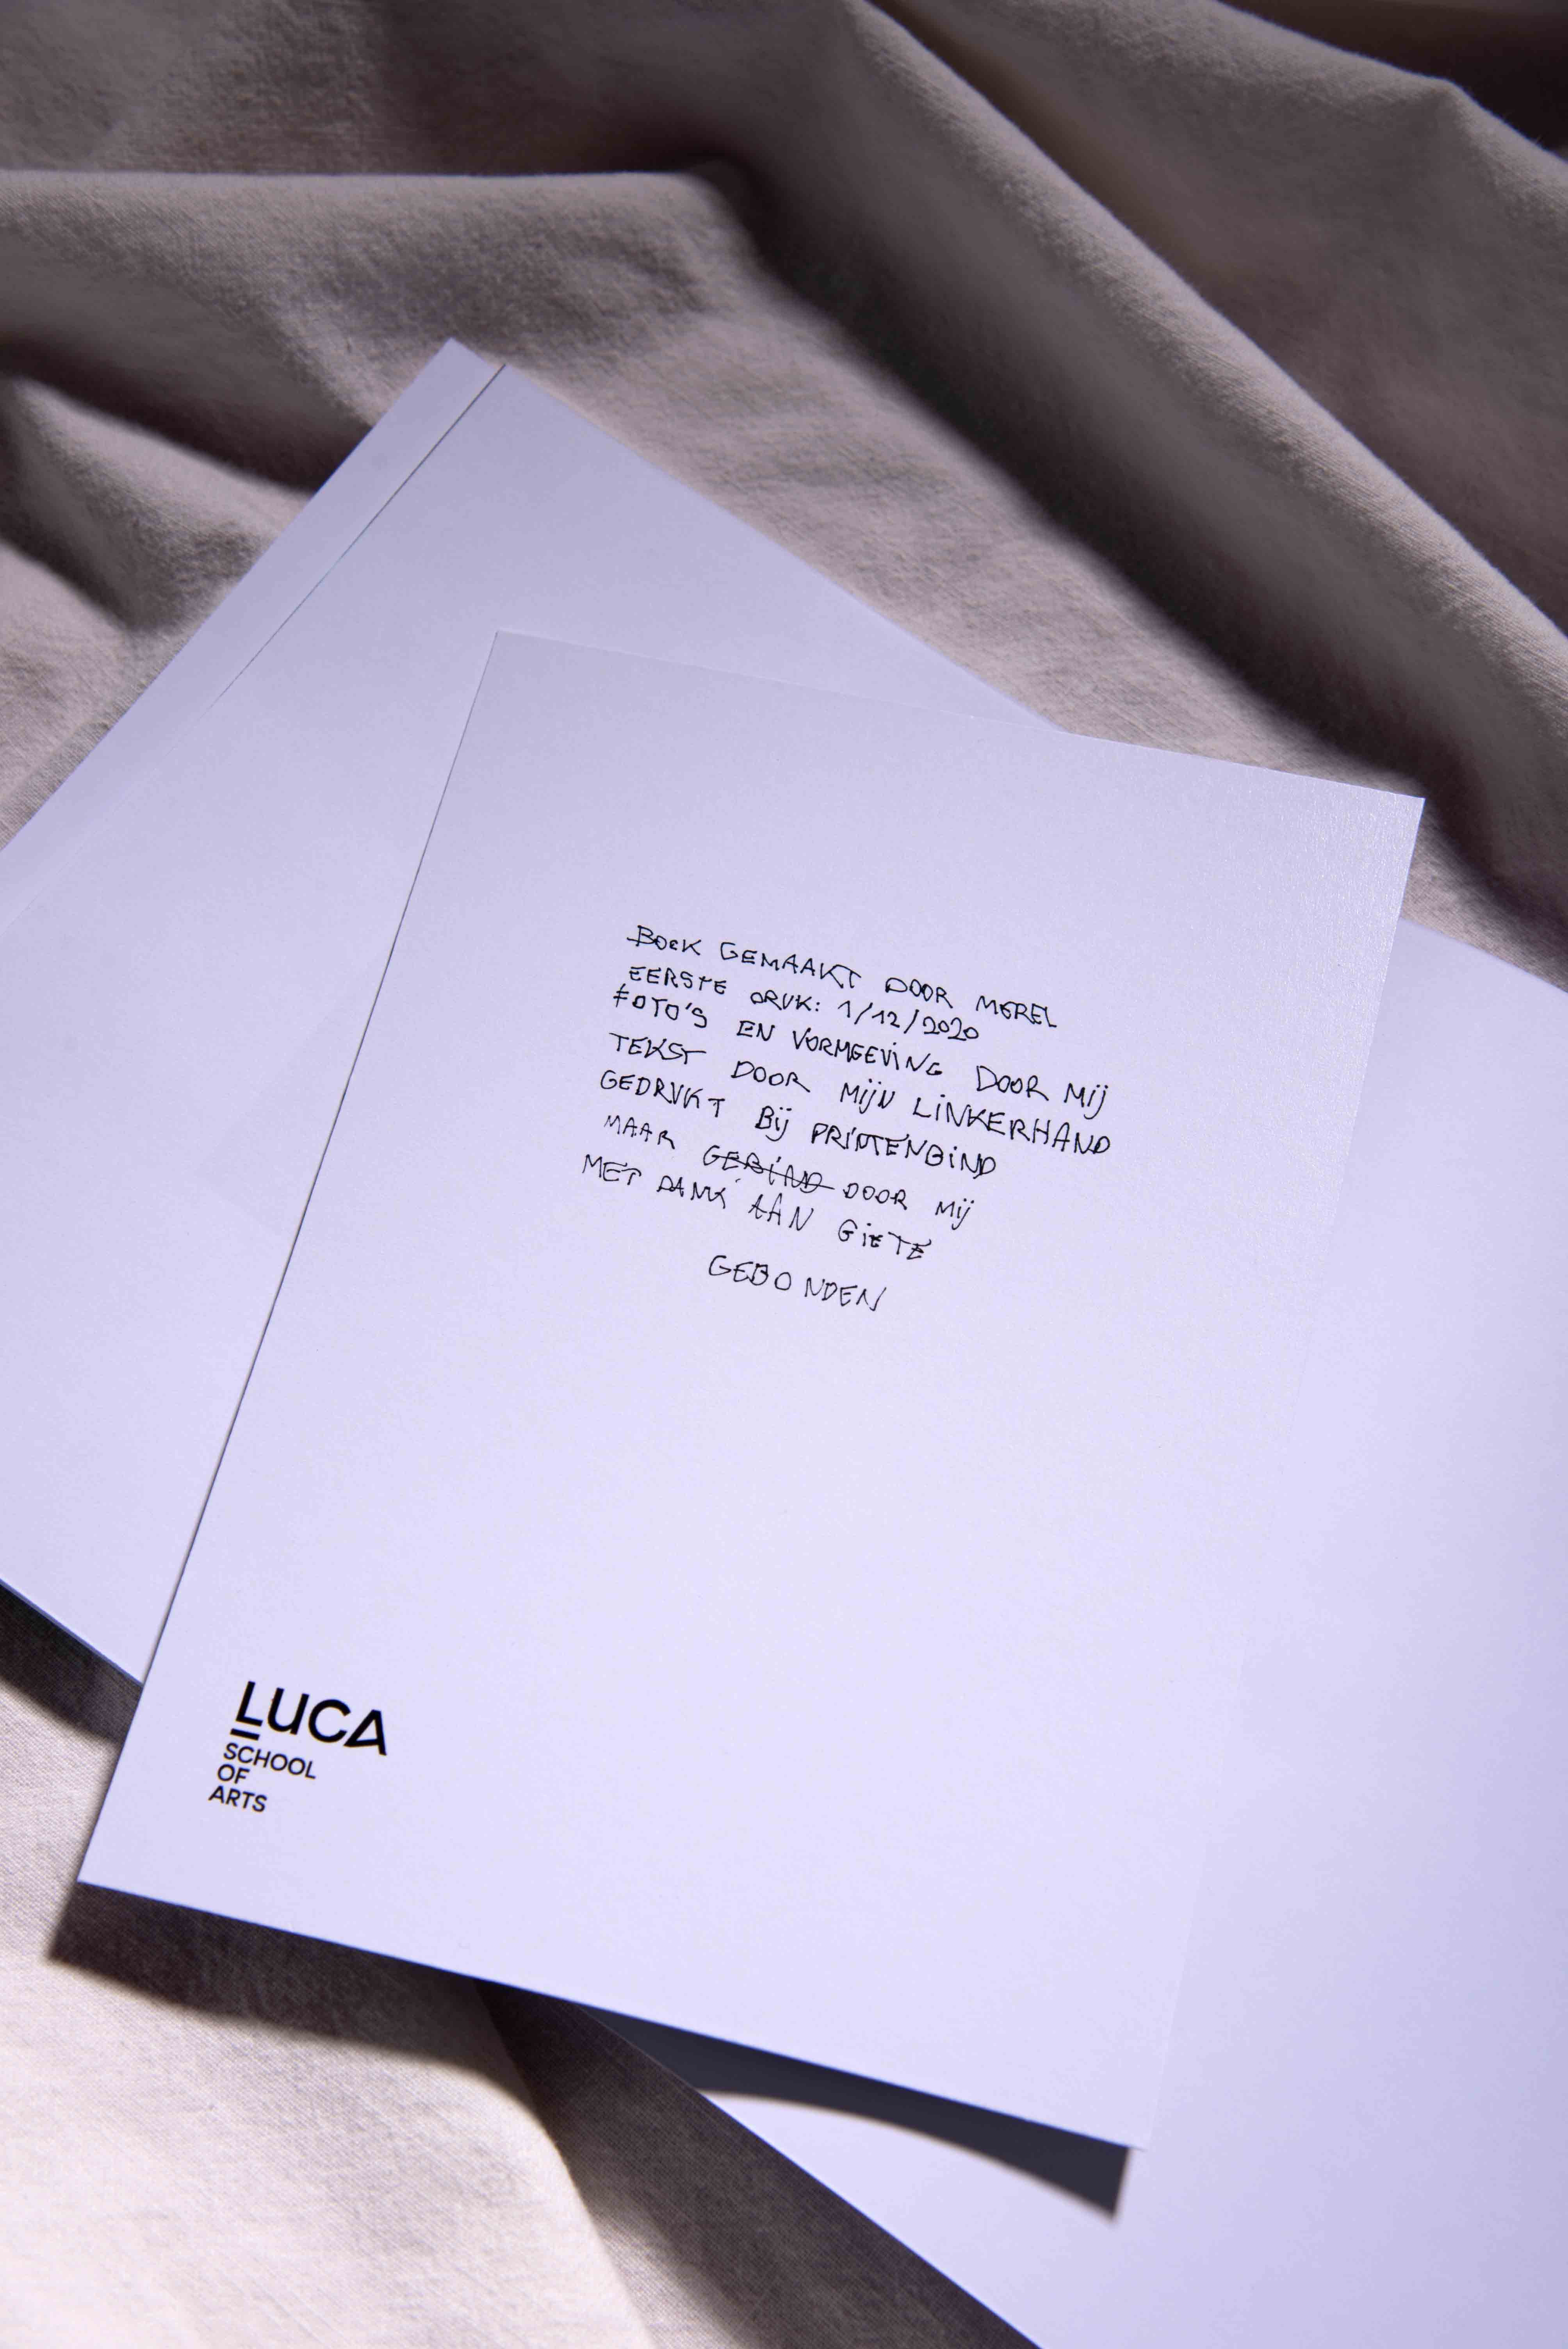 BOEK GEMAAKT DOOR MEREL
EERSTE DRUK: 1/12/2020
FOTO'S EN VORMGEVING DOOR MIJ
TEKST DOOR MIJN LINKERHAND
GEDRUKT BIJ PRINTENBIND
MAAR GEBIND DOOR MIJ
MET DANK AAN GIETE
GEBONDEN
LUCA
SCHOOL
OF
ARTS